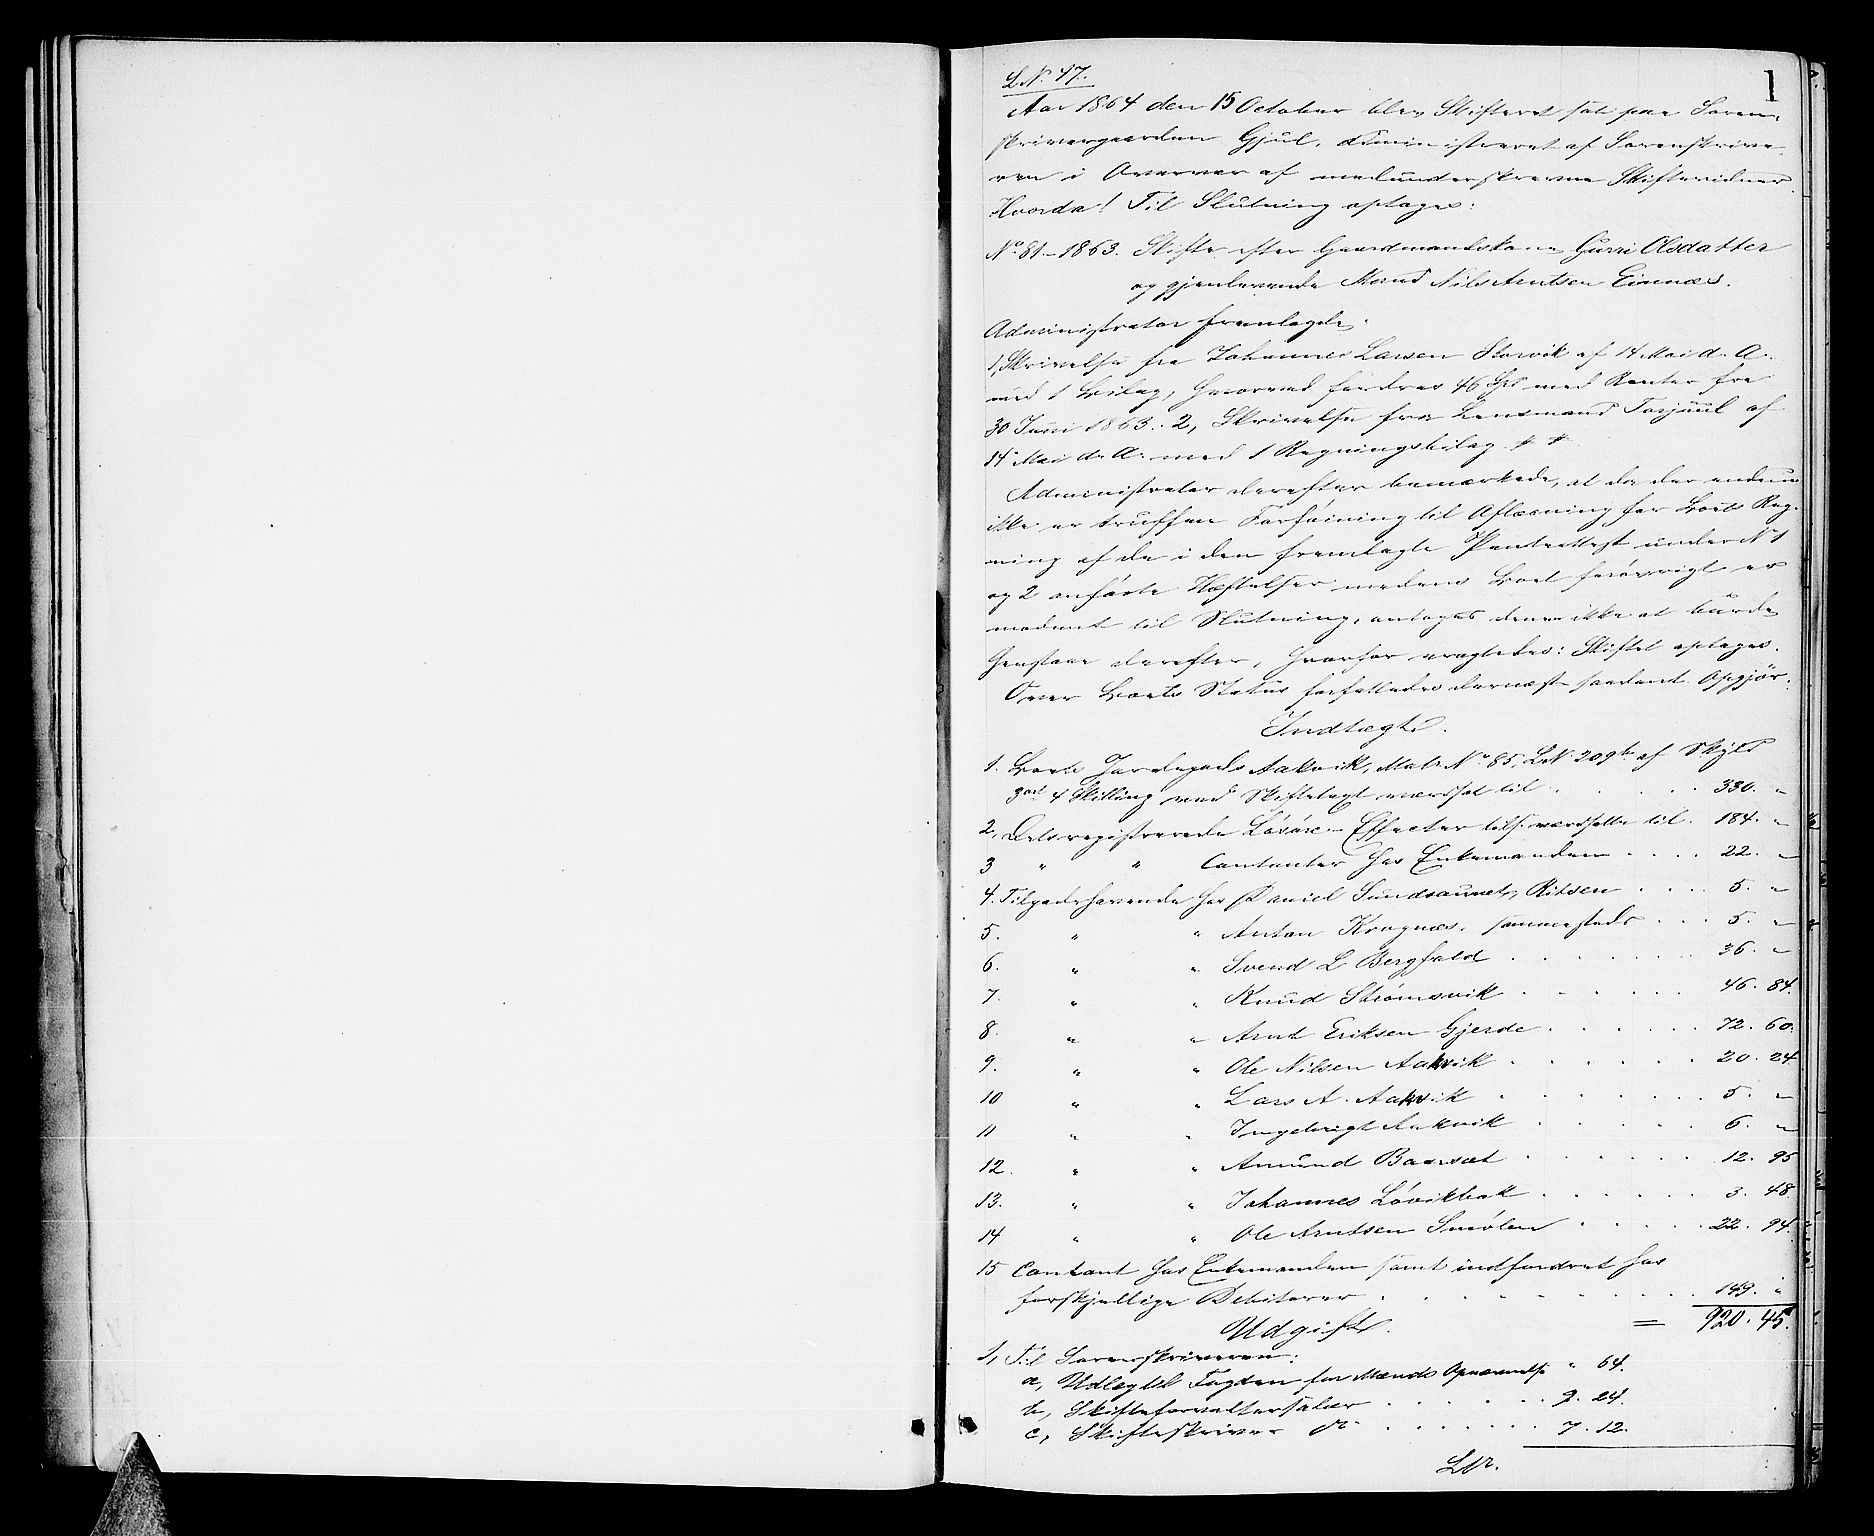 1
L.N. 47.
Aar 1864 den 15 October blev Skifteret sat paa Soren-
skrivergaarden Gjul, administreret af Sorenskrive-
ren i Overvær af medunderskrevne Skiftevidner.
Hvorda! Til Slutning optages:
No 81-1863. Skifte efter Gaardmandskone Gurri Olsdatter
og gjenlevende Mand Nils Arntsen Einnæs.
Administrator fremlagde:
1, Skrivelse fra Johannes Larsen Storvik af 14 Mai d. A.
med 1 Bilag, hvorved fordres 46 Spd med Renter fra
30 Juni 1863. 2, Skrivelse fra Lensmand Torjuul af
14 Mai d. A. med 1 Regningsbilag
Administrator derefter bemærkede, at da der endnu
ikke er truffen Forføining til Aflæsning for Boets Reg-
ning af de i den fremlagte Panteattest under No 1
og 2 anførte Hæftelser medens Boet forøvrigt er
modent til Slutning, antages denne ikke at burde
henstaae derefter, hvorfor eragtedes: Skiftet optages.
Over Boets Status forfattedes dernæst saadant Opgjør:
Indtægt.
1. Boets Jordegods Aakvik, Matr. No 85, L.N. 209b af Skyld
3ort 4 Skilling ved Skiftetaxt værdsat til . . . . 330. "
2, Dets registrerede Løsøre-Effecter tils. værdsatte til . 184. "
3 " " Contanter hos Enkemanden . . . . 22. "
4. Tilgodehavende hos Daniel Sundsaunet, Ritsen . . . . 5. "
5. " " Anton Krognæs, sammesteds . . . 5. "
6. " " Svend L Bergfald . . . . . . . 36. "
7. " " Knud Strømsvik . . . . . . 46. 84.
8. " " Arnt Eriksen Gjerde . . . . . . 72. 60.
9. " " Ole Nilsen Aakvik . . . . . . 20. 24
10 " " Lars A. Aakvik . . . . . . . 5. "
11 " " Ingebrigt Aakvik . . . . . . 6. "
12. " " Amund Baarset . . . . . . 12. 95
13. " " Johannes Løvikbak . . . . . . 3. 48
14 " " Ole Arntsen Smølen . . . . . 22. 94.
15 Contant hos Enkemanden samt indfordret hos
forskjellige Debitorer . . . . . . . . . 149. "
= 920. 45.
Udgift.
1, Til Sorenskriveren:
a, Udlæg til Fogden for Mænds Opnævnelse " 64.
b, Skifteforvaltersalær . . . . . . 9. 24.
c, Skifteskriver do . . . . . . 7. 12.
Ltr.